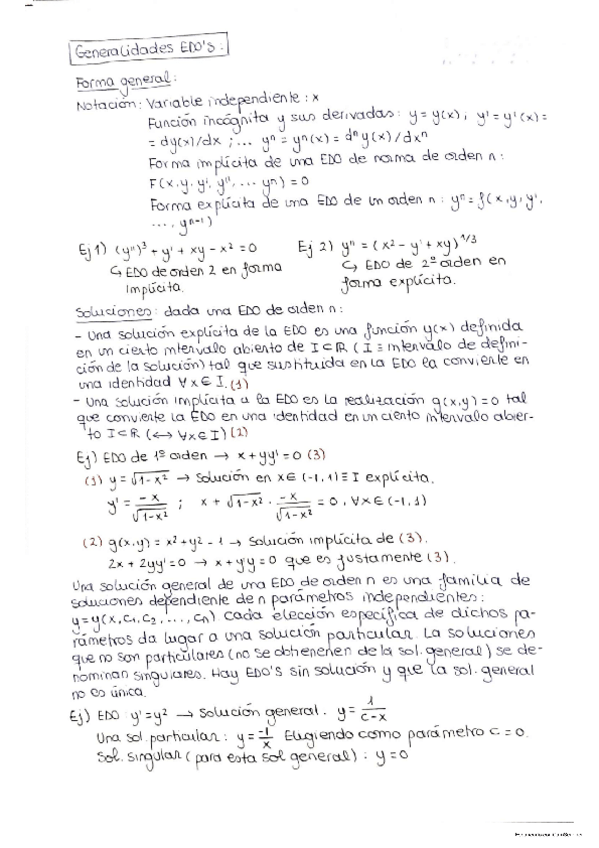 Generalidades EDO's:
Forma general:
Notación: Variable independiente: x
Función incógnita y sus derivadas: y = y(x); y' = y'(x) =
= dy(x)/dx ; ... yⁿ = yⁿ(x) = dⁿy(x)/dxⁿ
Forma implícita de una EDO de norma de orden n:
F(x, y, y', y'', ... yⁿ) = 0
Forma explícita de una EDO de un orden n: yⁿ = f(x, y, y',
..., yⁿ⁻¹)
Ej 1) (y'')³ + y' + xy - x² = 0 Ej 2) y'' = (x² - y' + xy)^1/3
↳ EDO de orden 2 en forma ↳ EDO de 2º orden en
implícita. forma explícita.
Soluciones: dada una EDO de orden n:
- Una solución explícita de la EDO es una función y(x) definida
en un cierto intervalo abierto de I⊂ℝ (I = intervalo de defini-
ción de la solución) tal que sustituida en la EDO la convierte en
una identidad ∀x∈I. (1)
- Una solución implícita a la EDO es la realización g(x,y) = 0 tal
que convierte la EDO en una identidad en un cierto intervalo abier-
to I⊂ℝ (↔ ∀x∈I) (2)
Ej) EDO de 1º orden → x + yy' = 0 (3)
(1) y = √1-x² → Solución en x∈(-1,1) ≡ I explícita.
y' = -x/√1-x² ; x + √1-x² · -x/√1-x² = 0, ∀x∈(-1,1)
(2) g(x,y) = x² + y² - 1 → Solución implícita de (3).
2x + 2yy' = 0 → x + y'y = 0 que es justamente (3).
Una solución general de una EDO de orden n es una familia de
soluciones dependiente de n parámetros independientes:
y = y(x, c₁, c₂, ..., cₙ). Cada elección específica de dichos pa-
rámetros da lugar a una solución particular. La soluciones
que no son particulares (no se obtenenen de la sol. general) se de-
nominan singulares. Hay EDO's sin solución y que la sol. general
no es única.
Ej) EDO y' = y² → Solución general. y = 1/c-x
Una sol. particular: y = -1/x Elugiendo como parámetro c = 0.
Sol. singular (para esta sol general): y = 0